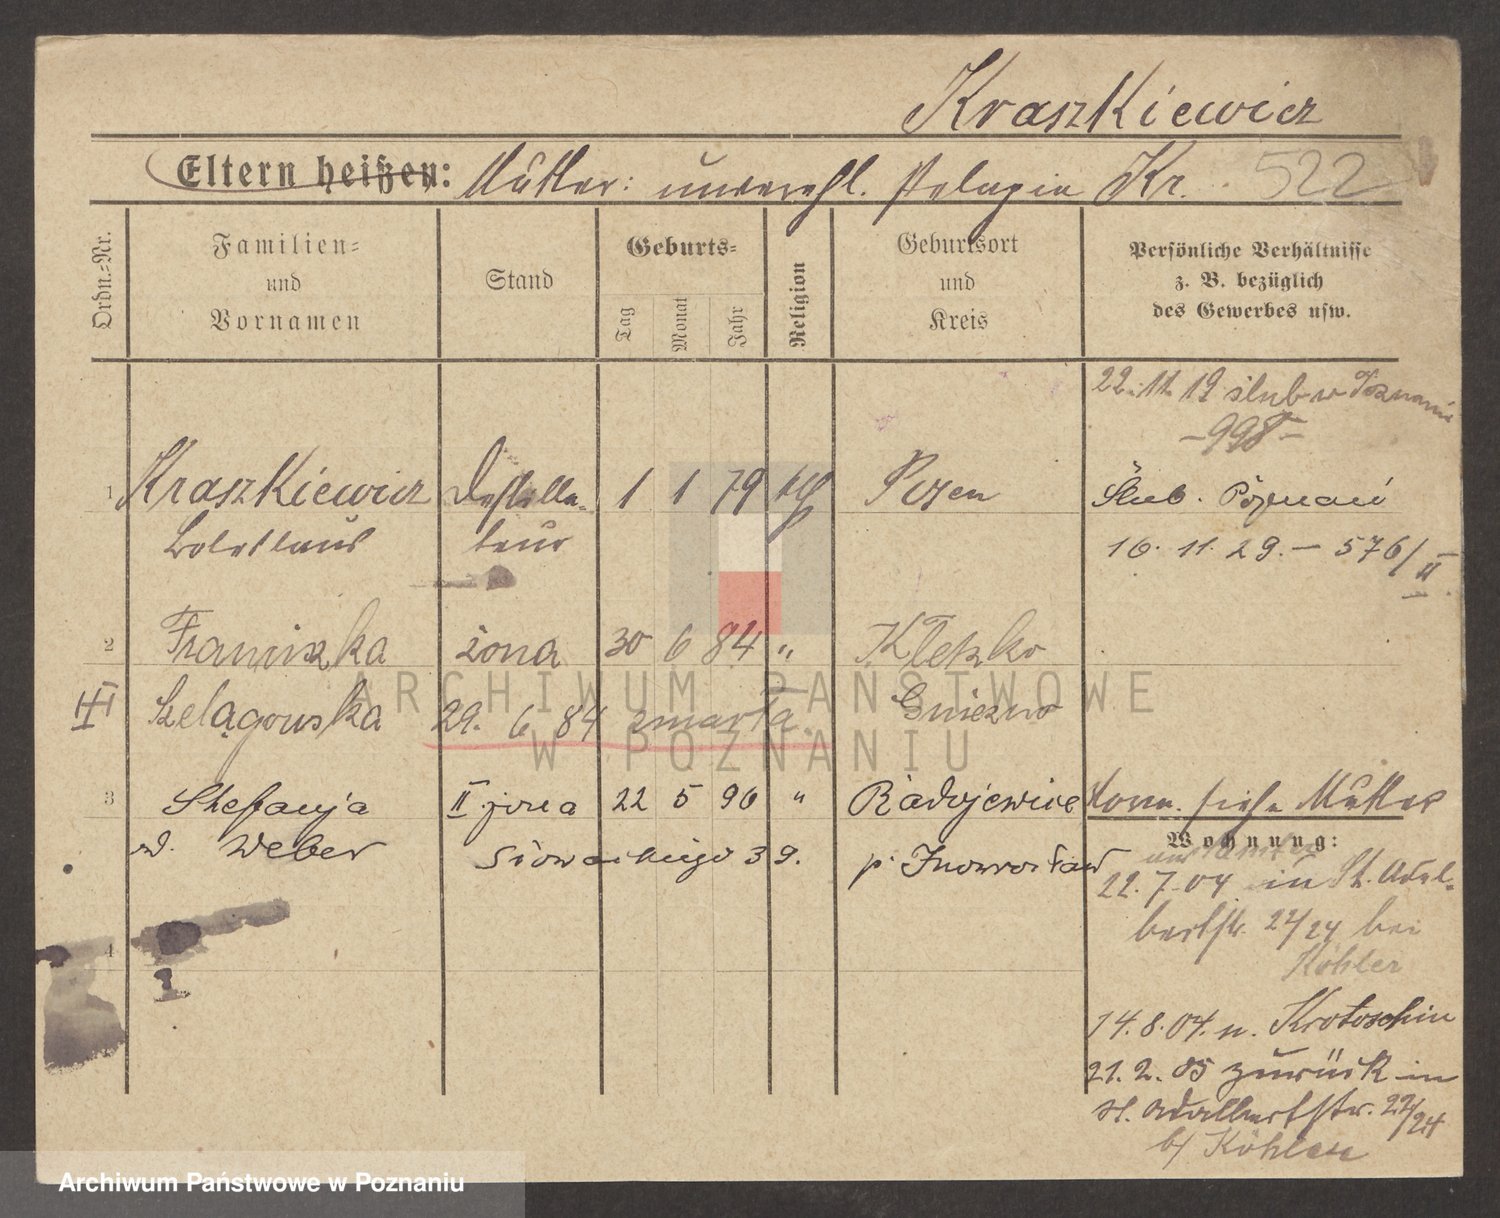 Kraszkiewicz
Eltern heißen: Mutter: unverehl. Pelagia Kr. 522
Ordn.-Nr.
Familien-
und
Vornamen
Stand
Geburts-
Tag
Monat
Jahr
Religion
Geburtsort
und
Kreis
Persönliche Verhältnisse
z. B. bezüglich
des Gewerbes usw.
22.11.19 ślub w Poznaniu
-998-
1 Kraszkiewicz Destilla- 1 1 79 kth Posen Ślub. Poznań
Boleslaus teur 16. 11. 29. – 576/II
2 Franciszka żona 30 6 84 " Kłetzko
III Szelągowska 29. 6 84 zmarła. Gniezno
3 Stefanja II żona 22 5 96 " Radojewice Vorm. siehe Mutter
w. Weber Słowackiego 39. p. Inowrocław
Wohnung:
22.7.04 in St. Adal-
bertstr. 22/24 bei
Köhler
4
14.8.04. n. Krotoschin
21.2.05 zurück in
St. Adalbertstr. 22/24
b/ Köhler
ARCHIWUM PAŃSTWOWE
W POZNANIU
Archiwum Państwowe w Poznaniu